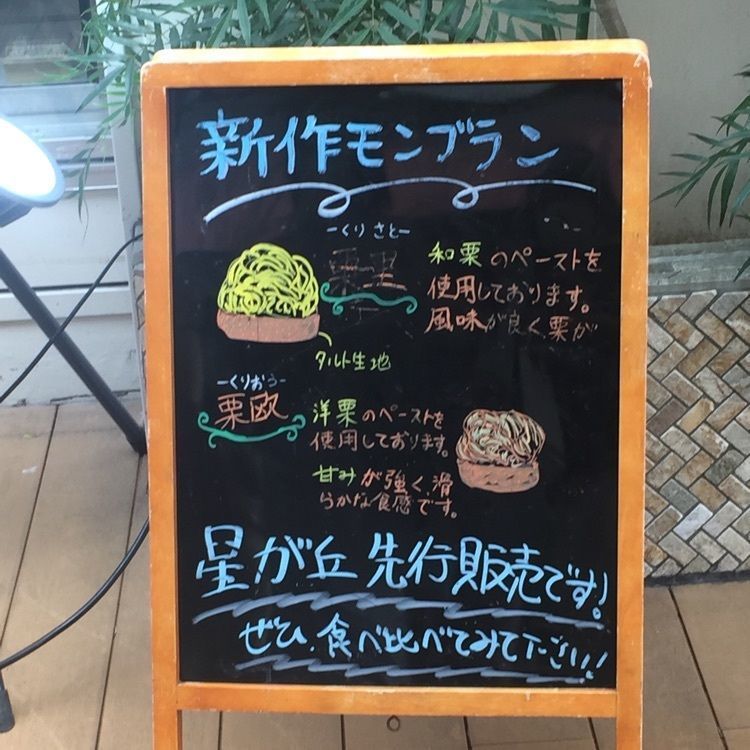 新作モンブラン
-くりさと-
栗里
和栗のペーストを
使用しております。
風味が良く、栗が
タルト生地
-くりおう-
栗欧
洋栗のペーストを
使用しております。
甘みが強く、滑
らかな食感です。
星が丘 先行販売です!
ぜひ、食べ比べてみて下さい!